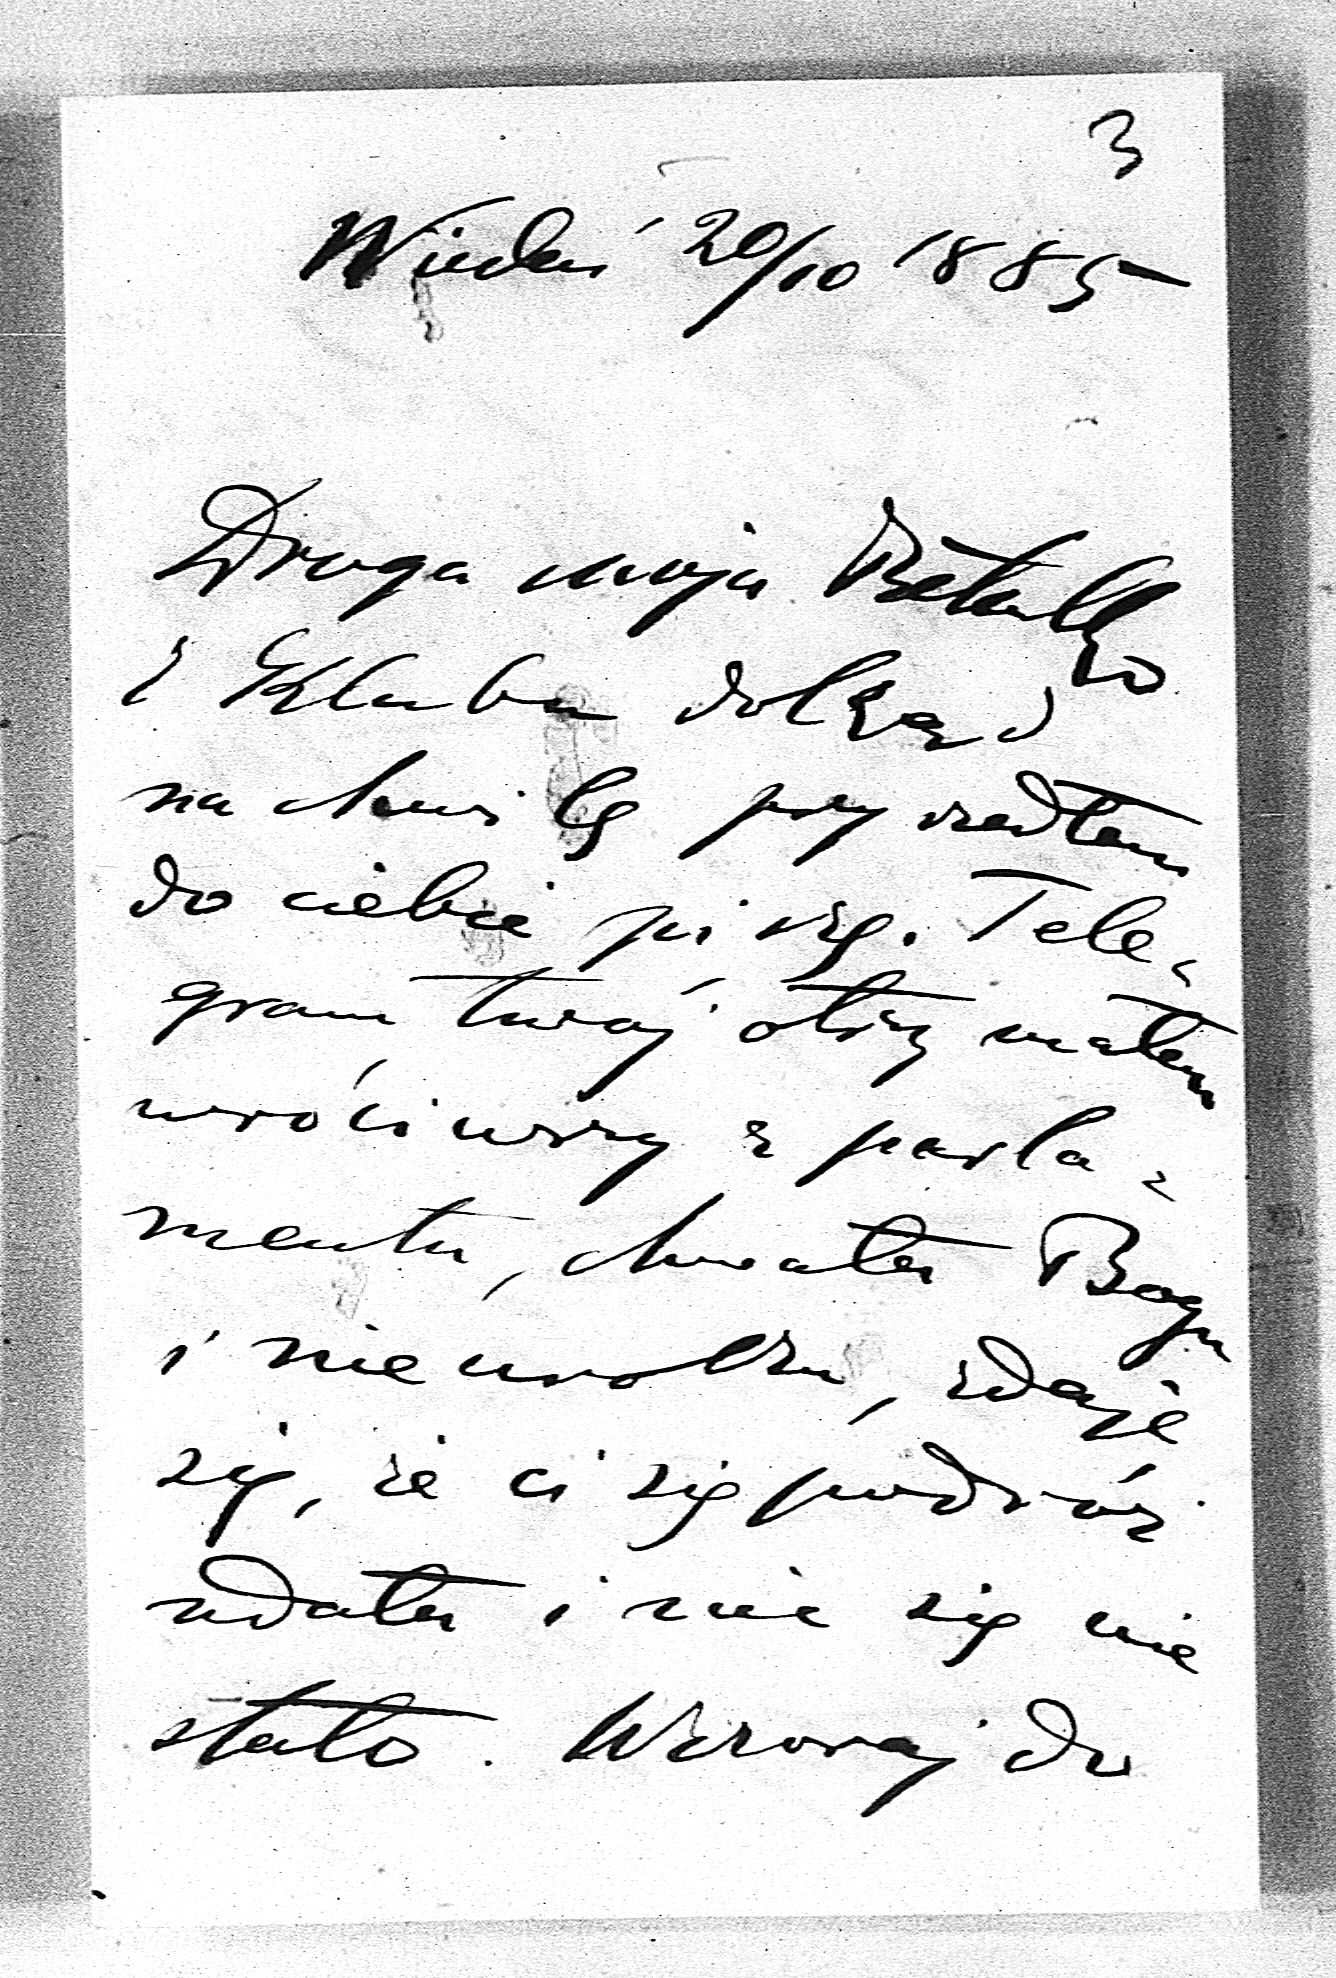 3
Wiedeń 20/10 1885
Droga moja
z Klubu dokąd
na chwilę przyszedłem
do ciebie piszę. Tele-
gram twój otrzymałem
wróciwszy z parla-
mentu, chwała Bogu
i nie wolku, zdaje
się, że ci się podróż
udała i nic się nie
stało. Wczoraj do